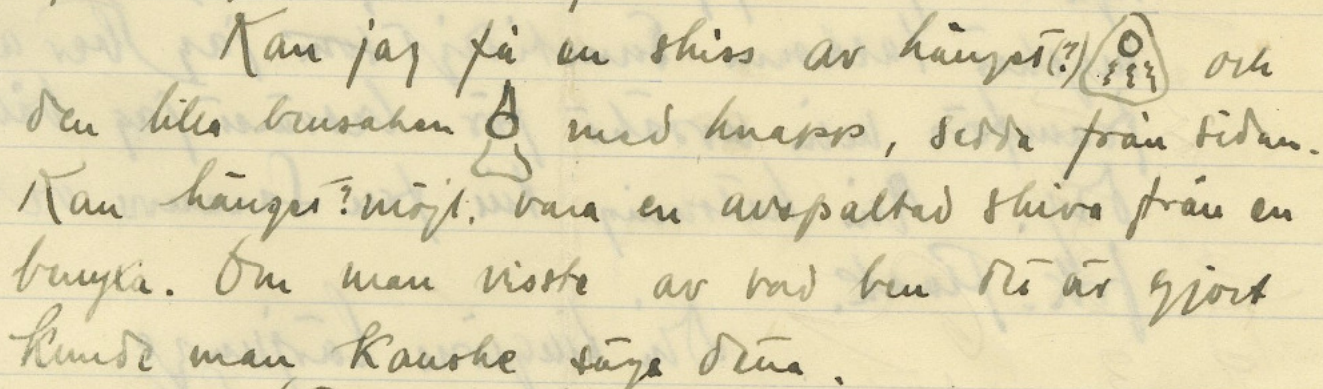 Kan jag få en skiss av hänget(?) och
den lilla bensaken med knapp, sedda från sidan.
Kan hänget? möjl. vara en avspaltad skiva från en
benyxa. Om man visste av vad ben det är gjort
kunde man kanske säga detta.